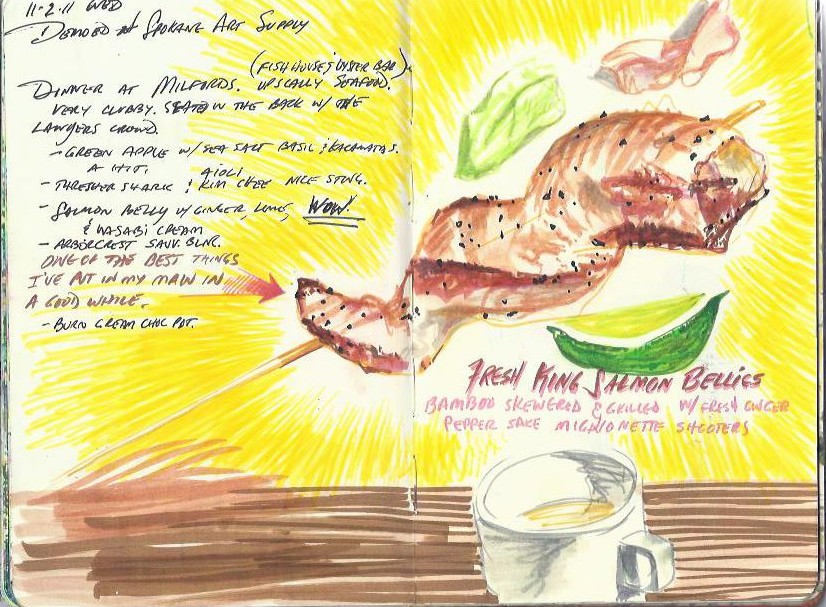 11-2-11 WED
DEMOED AT SPOKANE ART SUPPLY
(FISH HOUSE & OYSTER BAR)
DINNER AT MILFORDS. UPSCALLY SEAFOOD.
VERY CLUBBY. SEATED IN THE BACK W/ THE
LAWYERS CROWD.
- GREEN APPLE W/ SEA SALT BASIL & KALAMATAS.
A HIT.
AIOLI
- THRESHER SHARK & KIM CHEE NICE STING.
- SALMON BELLY W/ GINGER, LIME, WOW!
& WASABI CREAM
- ARBORCREST SAUV. BLNC.
ONE OF THE BEST THINGS
I'VE PUT IN MY MAW IN
A GOOD WHILE.
- BURN CREAM CHOC POT.
FRESH KING SALMON BELLIES
BAMBOO SKEWERED & GRILLED W/ FRESH GINGER
PEPPER SAKE MIGNONETTE SHOOTERS